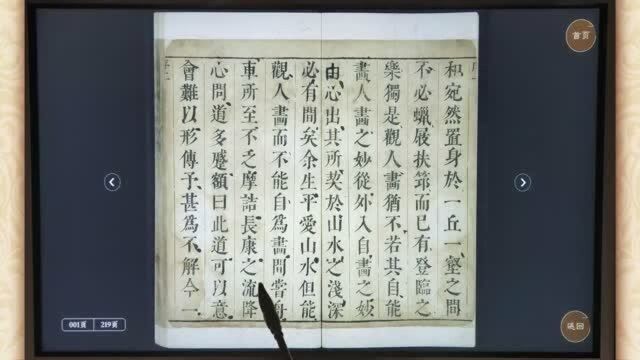 首页
和宛然置身於一丘一壑之間
不必蠟屐扶筇而已有登臨之
樂獨是觀人畫猶不若其自能
畫人畫之妙從外入自畫之妙
由心出其所契於山水之淺深
必有間矣余生平愛山水但能
觀人畫而不能自為畫間嘗舟
車所至不乏摩詰長康之流降
心問道多蹙額曰此道可以意
會難以形傳予甚為不解今一
001頁 219頁
返回